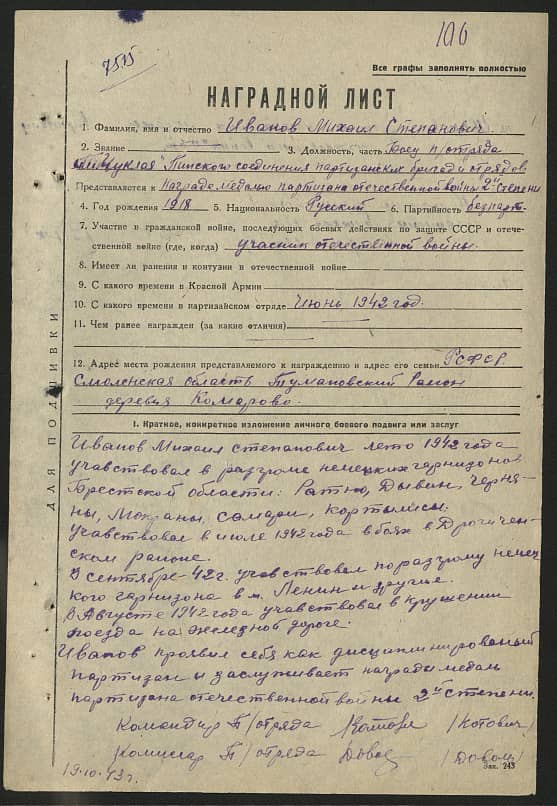 106
7515
Все графы заполнять полностью
НАГРАДНОЙ ЛИСТ
1. Фамилия, имя и отчество Иванов Михаил Степанович
2. Звание 3. Должность, часть Боец п/отряда
Пинского соединения партизанских бригад и отрядов
Представляется к Награде медалью партизана отечественной войны 2ой степени
4. Год рождения 1918 5. Национальность Русский 6. Партийность безпарт.
7. Участие в гражданской войне, последующих боевых действиях по защите СССР и отече-
ственной войне (где, когда) участник отечественной войны.
8. Имеет ли ранения и контузии в отечественной войне
9. С какого времени в Красной Армии
10. С какого времени в партизайском отряде Июнь 1942 год.
11. Чем ранее награжден (за какие отличия)
12. Адрес места рождения представляемого к награждению и адрес его семьи РСФСР
Смоленская область Тумановский Район
деревня Комарово.
I. Краткое, конкретное изложение личного боевого подвига или заслуг
ДЛЯ ПОДШИВКИ
Иванов Михаил степанович лето 1942 года
учавствовал в разгроме немецких гарнизонов
Брестской области: Ратно, Дывин, Черня-
ны, Мокраны, самари, кортылисы.
учавствовал в июле 1942 года в боях в Дрогичен-
ском районе.
В сентябре 42 г. учавствовал по разгрому немец
кого гарнизона в м. Ленин и другие.
В Августе 1942 года учавствовал в крушении
поезда на железной дороге.
Иванов проявил себя как дисциплинированый
партизан и заслуживает награди медаль
партизана отечественной войны 2ой степени.
Командир П/отряда (Котович)
Комисар П/отряда
19.10.43 г.
Зак. 243